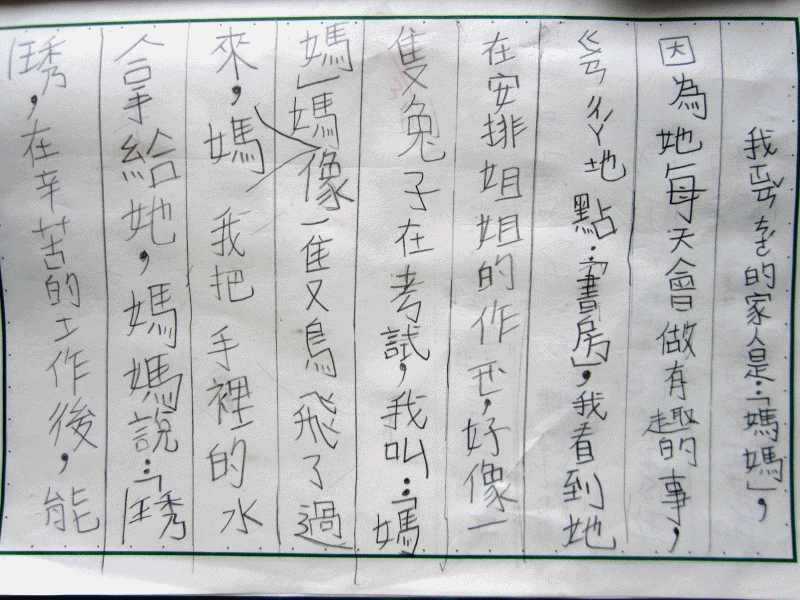 我的家人是:「媽媽」,
因為她每天會做有趣的事,
ㄍㄢ ㄔㄚ地點:「書房」,我看到她
在安排姐姐的作,好像一
隻兔子在考試,我叫:「媽
媽」媽像一隻鳥飛了過
來,媽我把手裡的水
拿給她,媽媽說:「琇
琇,在辛苦的工作後,能